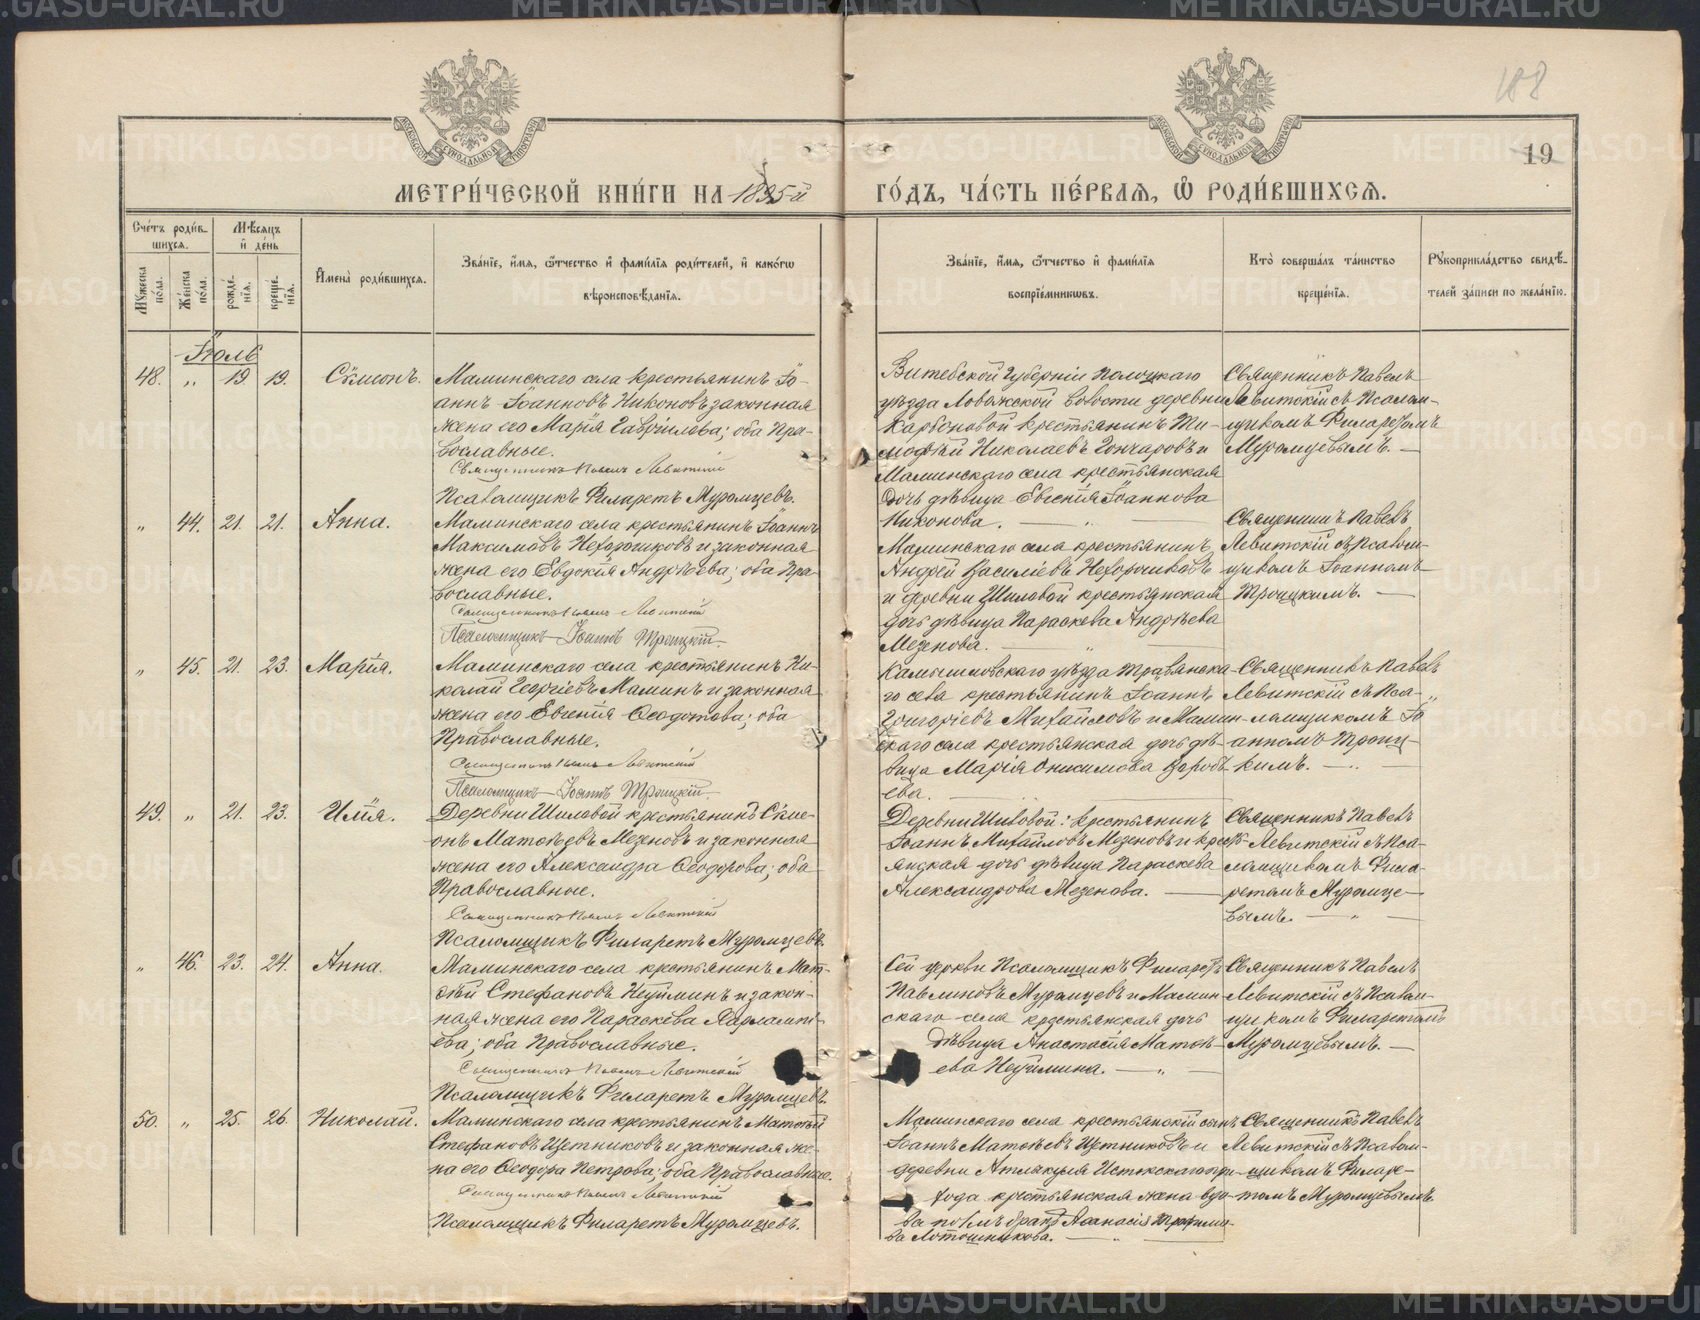 188
19
МОСКОВСКОЙ СѴНОДАЛЬНОЙ ТИПОГРАФІИ
МОСКОВСКОЙ СѴНОДАЛЬНОЙ ТИПОГРАФІИ
МЕТРИ́ЧЕСКОЙ КНИ́ГИ НА 1895-й
ГО́ДЪ, ЧА́СТЬ ПЕ́РВАЯ, Ѡ҆ РОДИ́ВШИХСЯ.
Сче́тъ роди́в-
шихся.
Мѣ́сяцъ
и҆ де́нь
Мꙋ́жеска по́ла.
Же́нска по́ла.
рожде́-
нїя.
креще́-
нїя.
И҆мена̀ роди́вшихся.
Зва́нїе, и҆́мя, ѻ҆́тчество и҆ фами́лїя роди́телей, и҆ како́гѡ
вѣроисповѣ́данїя.
Зва́нїе, и҆́мя, ѻ҆́тчество и҆ фами́лїя
воспрїе́мникѡвъ.
Кто̀ соверша́лъ та́инство
креще́нїя.
Рꙋкоприкла́дство свидѣ́-
телей за́писи по жела́нїю.
Іюль
48. „ 19 19. Сѷмеонъ.
Маминскаго села крестьянинъ Іо-
аннъ Іоанновъ Никоновъ законная
жена его Марія Гаврилова; оба Пра-
вославные.
Священникъ Павелъ Левитскій
Псаломщикъ Филаретъ Муромцевъ.
Витебской Губерніи Полоцкаго
уѣзда Ловожской волости деревни
Карбоновой крестьянинъ Ти-
мофей Николаевъ Гончаровъ и
Маминскаго села крестьянская
дочь дѣвица Евгенія Іоаннова
Никонова.
Священникъ Павелъ
Левитскій съ Псалом-
щикомъ Филаретомъ
Муромцевымъ.
„ 44. 21. 21. Анна.
Маминскаго села крестьянинъ Іоаннъ
Максимовъ Нехорошковъ и законная
жена его Евдокія Андреева; оба Пра-
вославные.
Священникъ Павелъ Левитскій
Псаломщикъ Іоаннъ Троицкій.
Маминскаго села крестьянинъ
Андрей Василіевъ Нехорошковъ
и деревни Шиловой крестьянская
дочь дѣвица Параскева Андреева
Мезенова.
Священникъ Павелъ
Левитскій съ Псалом-
щикомъ Іоанномъ
Троицкимъ.
„ 45. 21. 23. Марія.
Маминскаго села крестьянинъ Ни-
колай Георгіевъ Маминъ и законная
жена его Евгенія Ѳеодотова; оба
Православные.
Священникъ Павелъ Левитскій
Псаломщикъ Іоаннъ Троицкій.
Камышловскаго уѣзда Травянска-
го села крестьянинъ Іоаннъ
Григоріевъ Михайловъ и Мамин-
скаго села крестьянская дочь дѣ-
вица Марія Онисимова Вороб-
ева.
Священникъ Павелъ
Левитскій съ Пса-
ломщикомъ Іо-
анномъ Троиц-
кимъ.
49. „ 21. 23. Илія.
Деревни Шиловой крестьянинъ Сѷме-
онъ Матѳеевъ Мезеновъ и законная
жена его Александра Ѳеодорова; оба
Православные.
Священникъ Павелъ Левитскій
Псаломщикъ Филаретъ Муромцевъ.
Деревни Шиловой: крестьянинъ
Іоаннъ Михайловъ Мезеновъ и крест-
янская дочь дѣвица Параскева
Александрова Мезенова.
Священникъ Павелъ
Левитскій съ Пса-
ломщикомъ Фила-
ретомъ Муромце-
вымъ.
„ 46. 23. 24. Анна.
Маминскаго села крестьянинъ Мат-
ѳей Стефановъ Неуйминъ и закон-
ная жена его Параскева Харлампі-
ева; оба Православные.
Священникъ Павелъ Левитскій
Псаломщикъ Филаретъ Муромцевъ.
Сей церкви Псаломщикъ Филаретъ
Павлиновъ Муромцевъ и Мамин-
скаго села крестьянская дочь
дѣвица Анастасія Матѳе-
ева Неуймина.
Священникъ Павелъ
Левитскій съ Псалом-
щикомъ Филаретомъ
Муромцевымъ.
50. „ 25. 26. Николай.
Маминскаго села крестьянинъ Матѳей
Стефановъ Щетниковъ и законная же-
на его Ѳеодора Петрова; оба Православные.
Священникъ Павелъ Левитскій
Псаломщикъ Филаретъ Муромцевъ.
Маминскаго села крестьянскій сынъ
Іоаннъ Матѳеевъ Щетниковъ и
деревни Истокскаго при-
хода крестьянская жена вдо-
ва Аѳанасія
Лотошникова.
Священникъ Павелъ
Левитскій съ Псалом-
щикомъ Филаре-
томъ Муромцевымъ.
METRIKI.GASO-URAL.RU